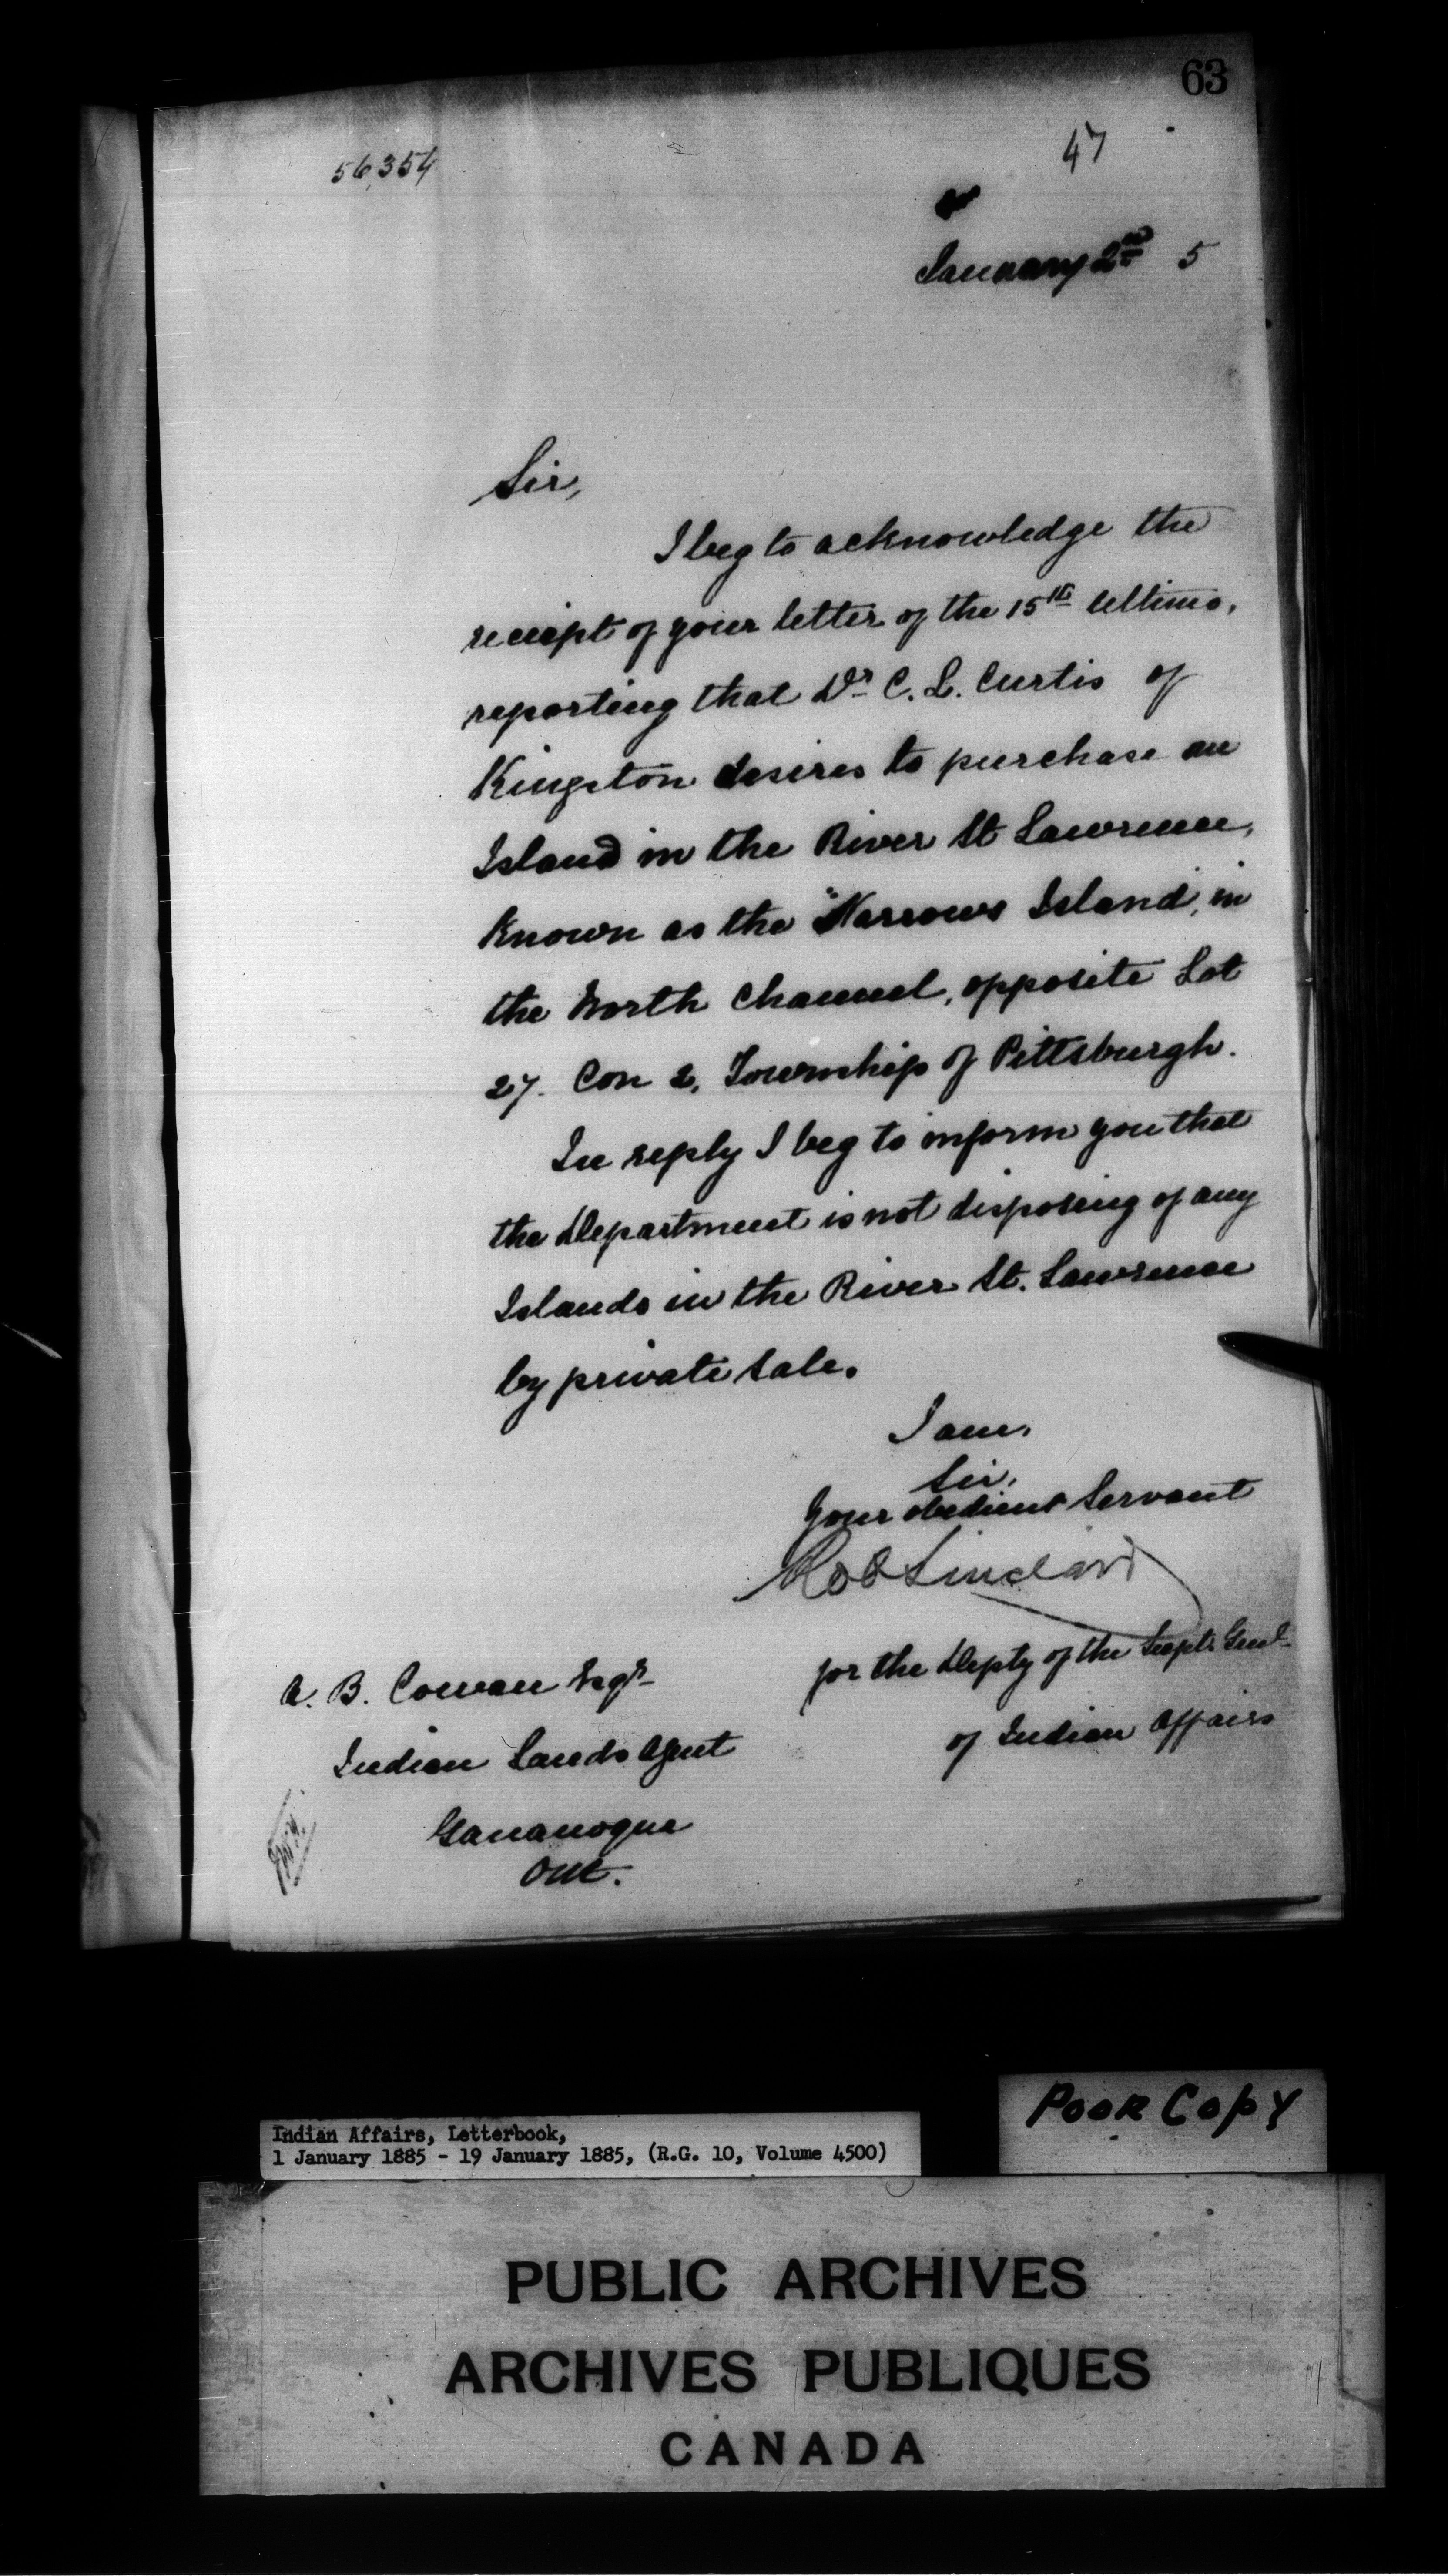 63
47
56,354
January 2nd 5
Sir,
I beg to acknowledge the
receipt of your letter of the 15th ultimo,
reporting that Dr C. L. Curtis of
Kingston desires to purchase an
Island in the River St Lawrence,
known as the "Narrows Island", in
the North Channel, opposite Lot
27. Con 2, Township of Pittsburgh.
In reply I beg to inform you that
the Department is not disposing of any
Islands in the River St. Lawrence
by private sale.
I am,
Sir,
Your obedient Servant
Rob Sinclair
for the Depty of the Supt. Genl
of Indian Affairs
A. B. Cowan Esqr
Indian Lands Agent
Gananoque
Ont.
Poor Copy
Indian Affairs, Letterbook,
1 January 1885 - 19 January 1885, (R.G. 10, Volume 4500)
PUBLIC ARCHIVES
ARCHIVES PUBLIQUES
CANADA